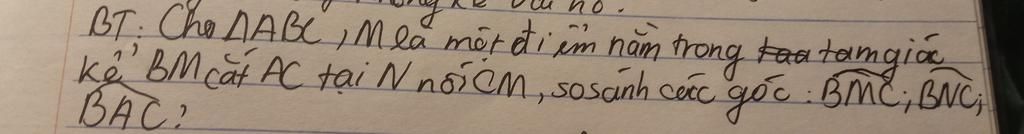 BT: Cho ΔABC, M là một điểm nằm trong tam giác
Kẻ BM cắt AC tại N nối CM, so sánh các góc: BMC; BNC;
BAC?